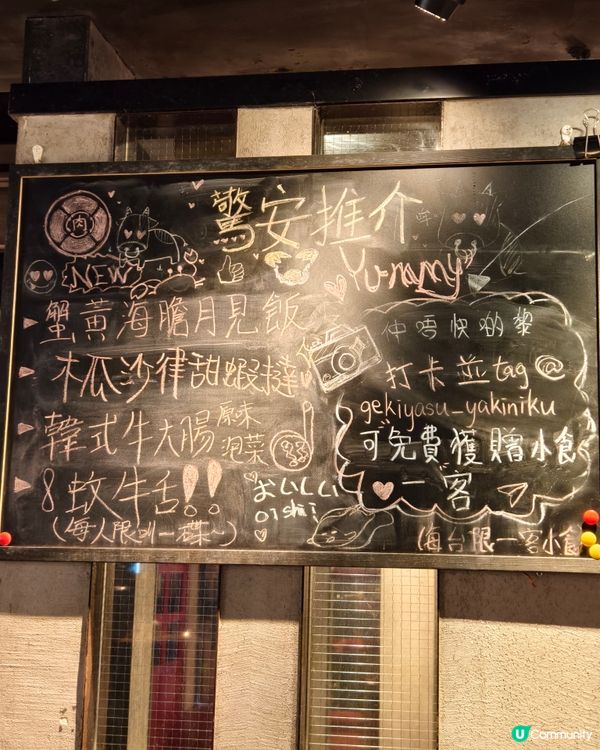 肉
驚安推介
NEW
Yummy
蟹黃海膽月見飯
木瓜沙律甜蝦撻
韓式牛大腸 原味 泡菜
8蚊牛舌!!
(每人限叫一碟~)
おいしい
oishi!
仲唔快啲黎
打卡並tag @
gekiyasu_yakiniku
可免費獲贈小食
一客
(每台限一客小食
U Community